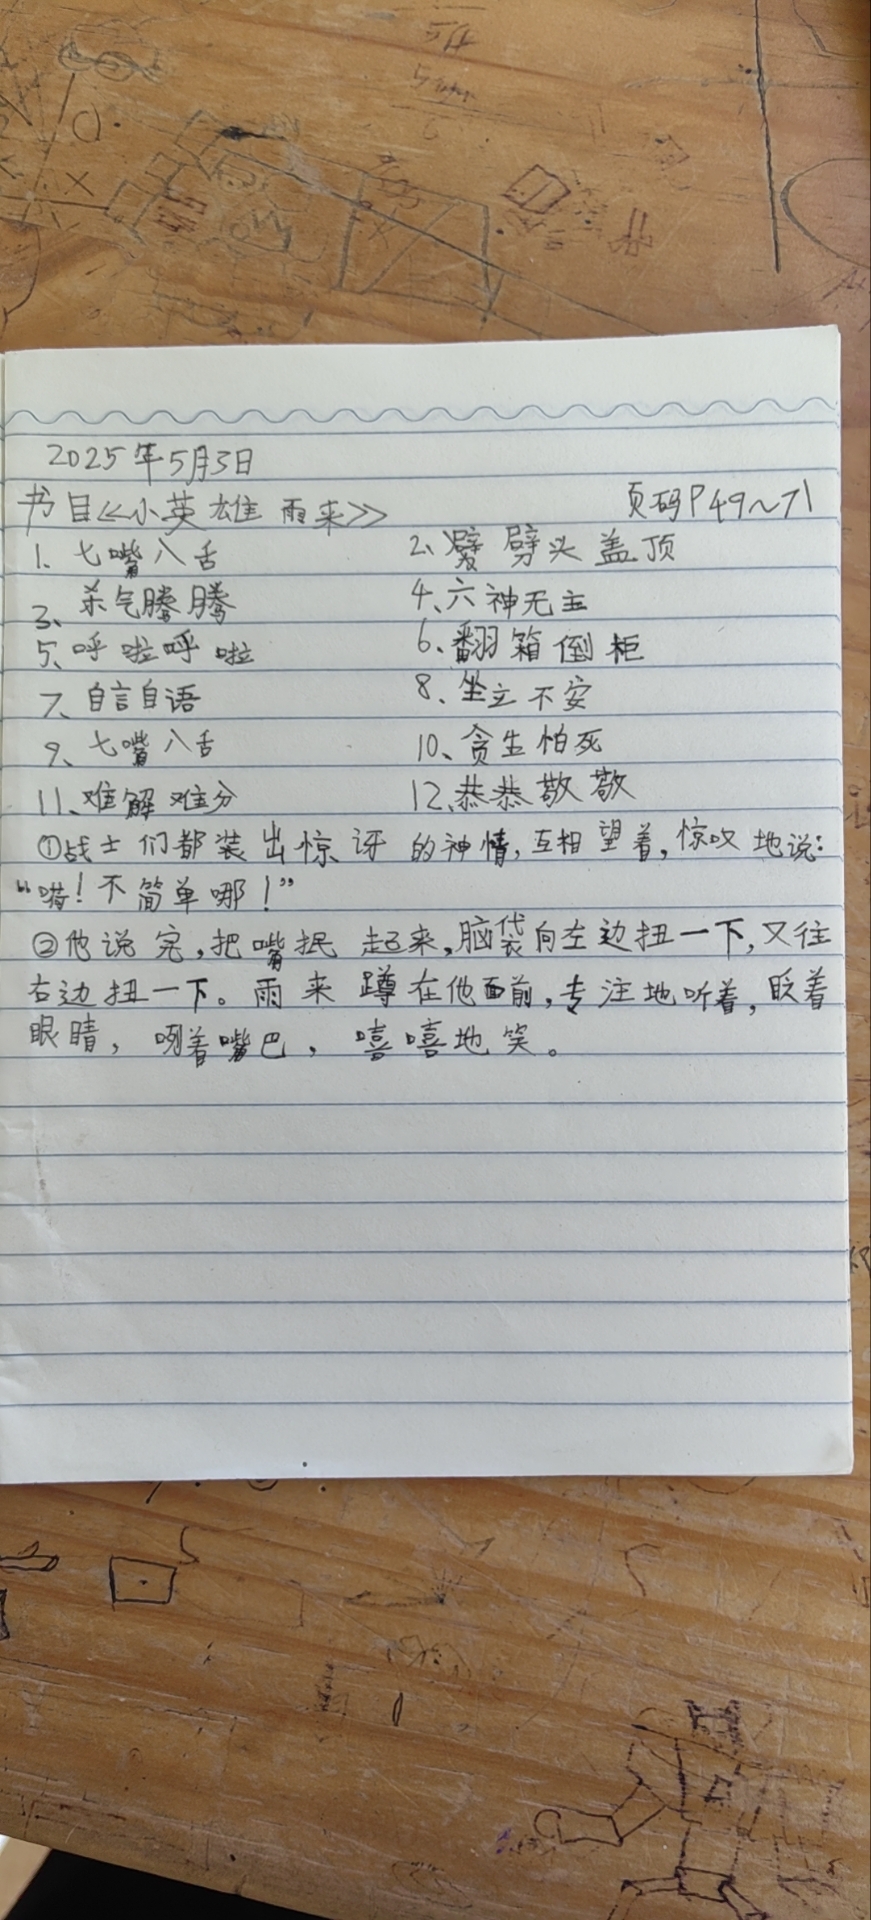 2025年5月3日
书目《小英雄雨来》 页码P49~71
1、七嘴八舌 2、劈头盖顶
3、杀气腾腾 4、六神无主
5、呼啦呼啦 6、翻箱倒柜
7、自言自语 8、坐立不安
9、七嘴八舌 10、贪生怕死
11、难解难分 12、恭恭敬敬
①战士们都装出惊讶的神情,互相望着,惊叹地说:
“嗬!不简单哪!”
②他说完,把嘴抿起来,脑袋向左边扭一下,又往
右边扭一下。雨来蹲在他面前,专注地听着,眨着
眼睛,咧着嘴巴,嘻嘻地笑。